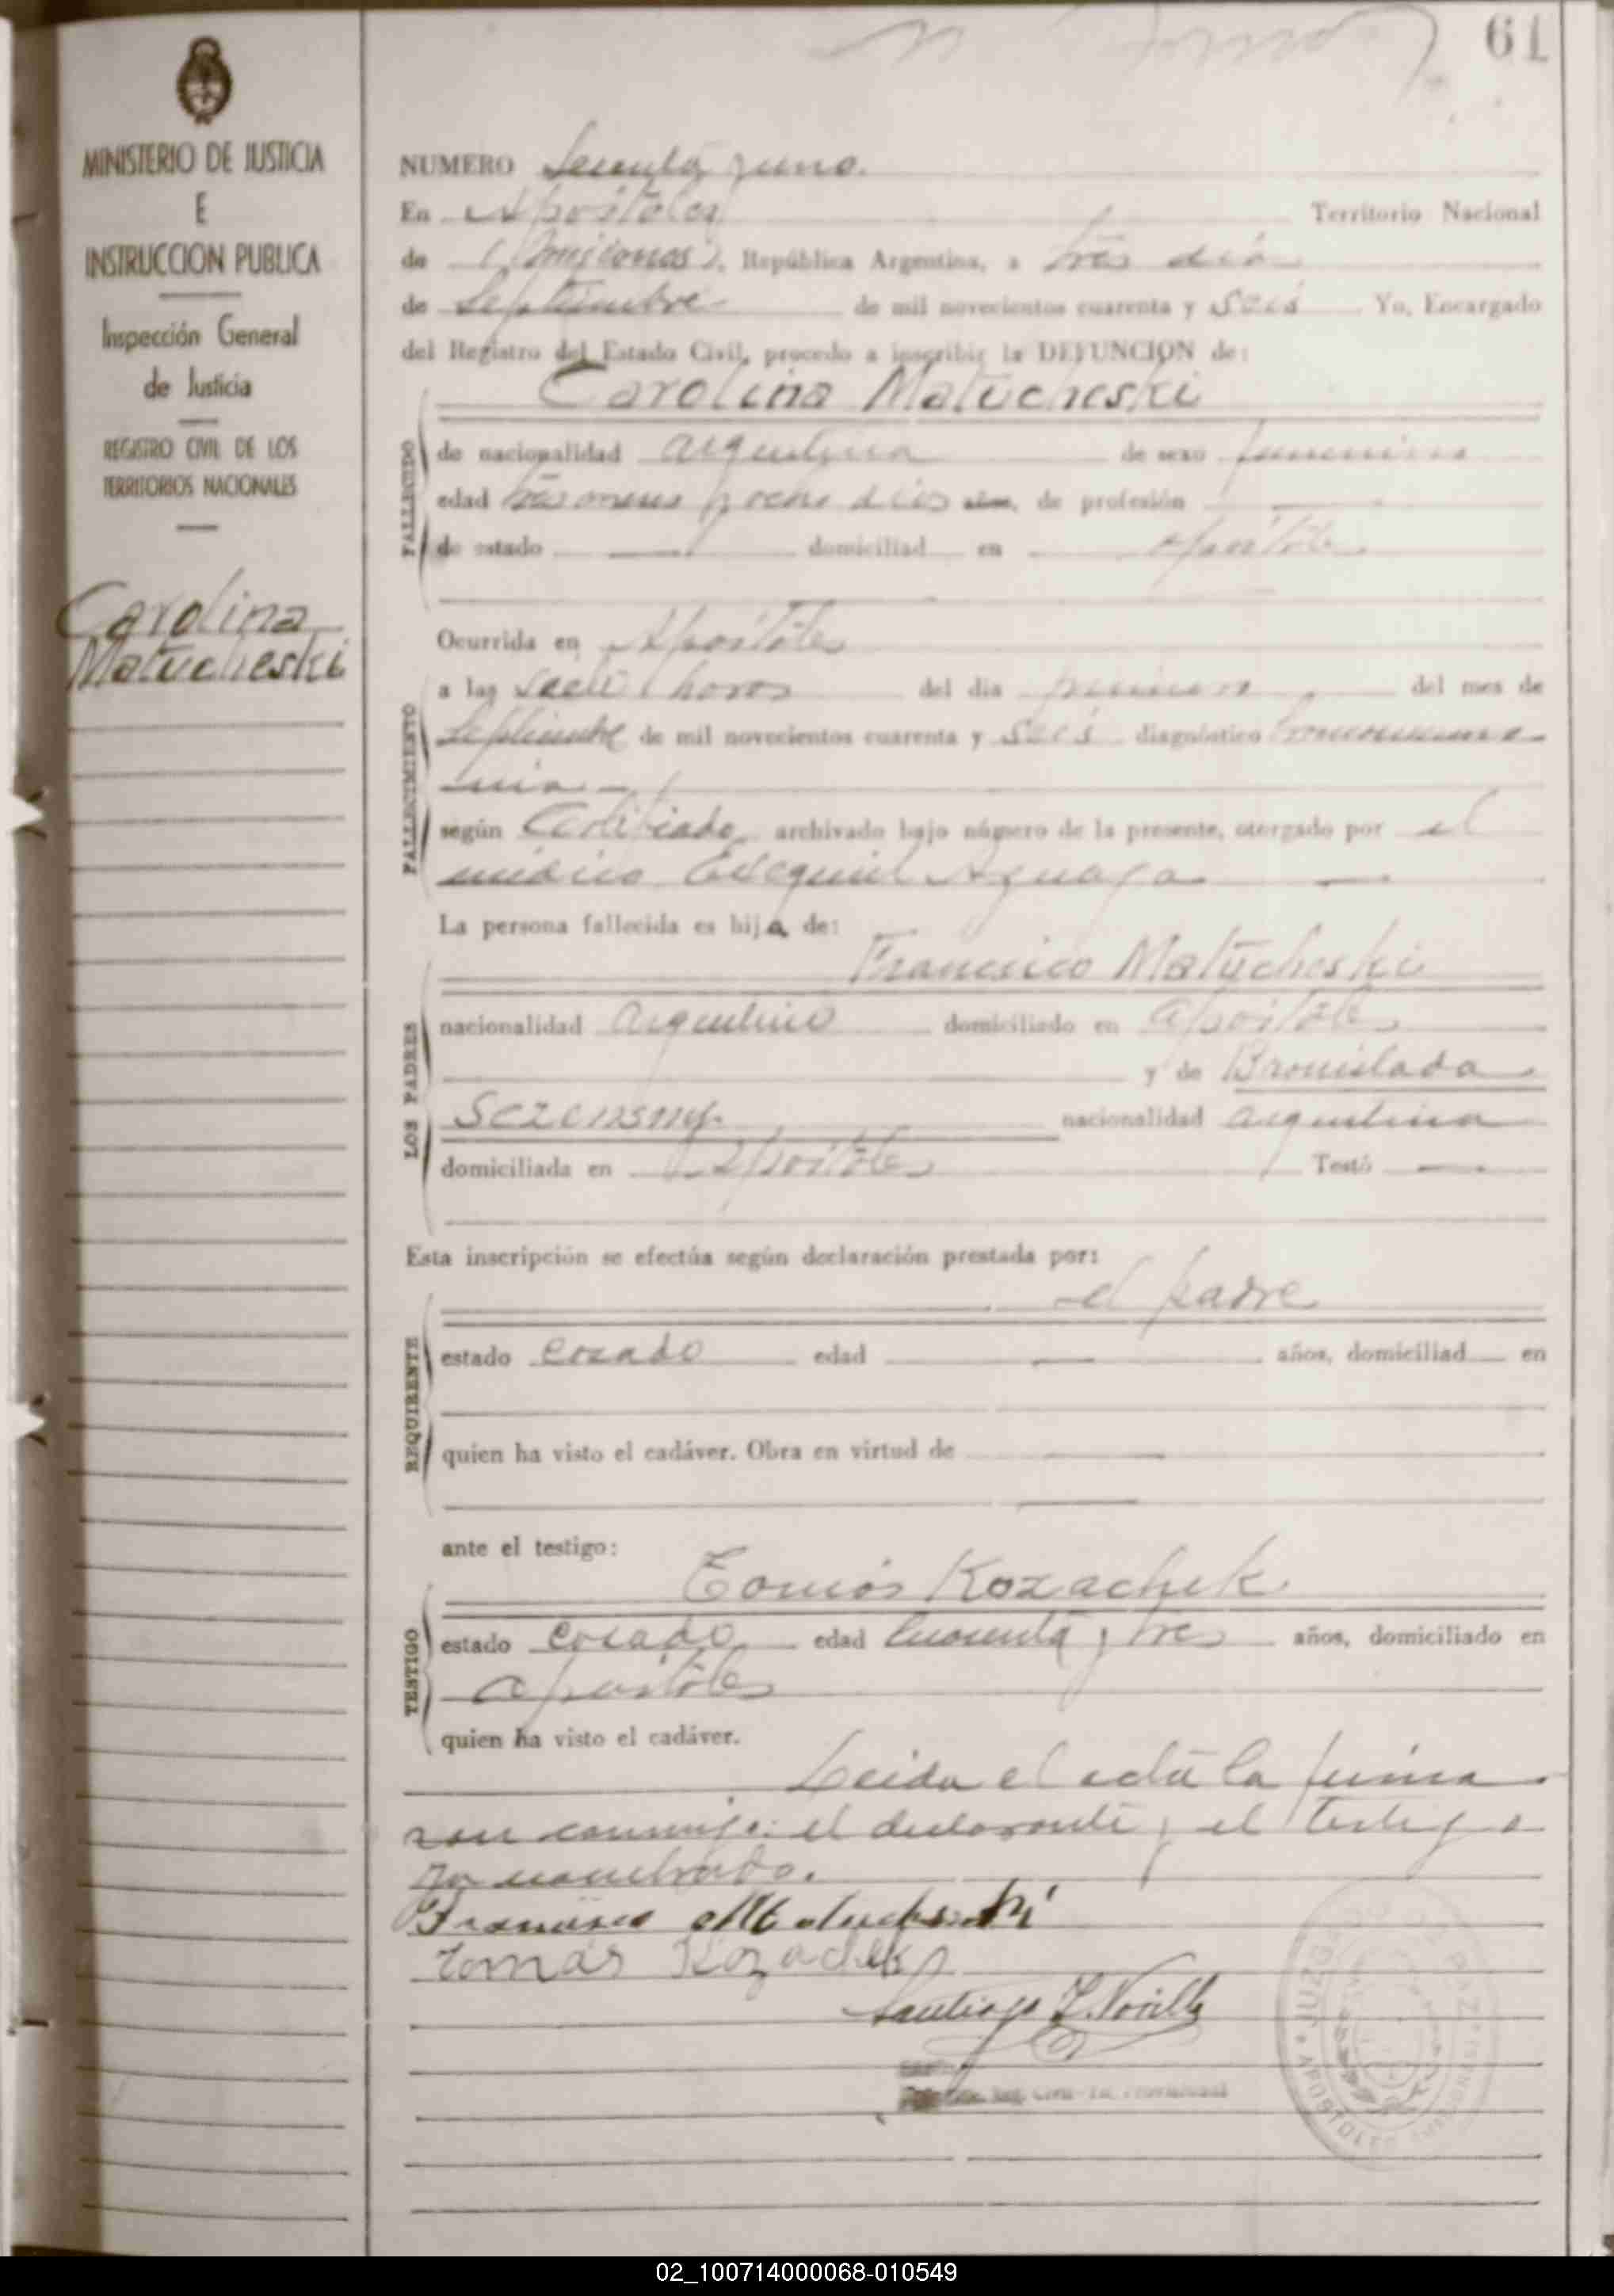 61
MINISTERIO DE JUSTICIA
E
INSTRUCCION PUBLICA
Inspección General
de Justicia
REGISTRO CIVIL DE LOS
TERRITORIOS NACIONALES
Carolina
Matucheski
NUMERO Sesenta y uno.
En Apostoles Territorio Nacional
de (Misiones), República Argentina, a tres dias
de Septiembre de mil novecientos cuarenta y seis Yo, Encargado
del Registro del Estado Civil, procedo a inscribir la DEFUNCION de:
Carolina Matucheski
FALLECIDO
de nacionalidad argentina de sexo femenino
edad tres meses y ocho dias años, de profesión
de estado domiciliad en Apostoles
FALLECIMIENTO
Ocurrida en Apostoles
a las siete horas del dia primero del mes de
Septiembre de mil novecientos cuarenta y seis diagnóstico
según Certificado archivado bajo número de la presente, otorgado por el
médico Ezequiel
La persona fallecida es hija de:
LOS PADRES
Francisco Matucheski
nacionalidad argentino domiciliado en apostoles
y de Bronislada
Sczensny nacionalidad argentina
domiciliada en Apostoles Testó
Esta inscripción se efectúa según declaración prestada por:
REQUIRENTE
el padre
estado casado edad años, domiciliad en
quien ha visto el cadáver. Obra en virtud de
ante el testigo:
TESTIGO
Tomás Kozachek
estado casado edad cuarenta y tres años, domiciliado en
apostoles
quien ha visto el cadáver.
Leida el acta la firma
ron conmigo: el declarante y el testigo
ya nombrado.
Francisco Matucheski
Tomás Kozachek
Santiago
Reg. Civil
JUZGADO DE PAZ
APOSTOLES
02_100714000068-010549